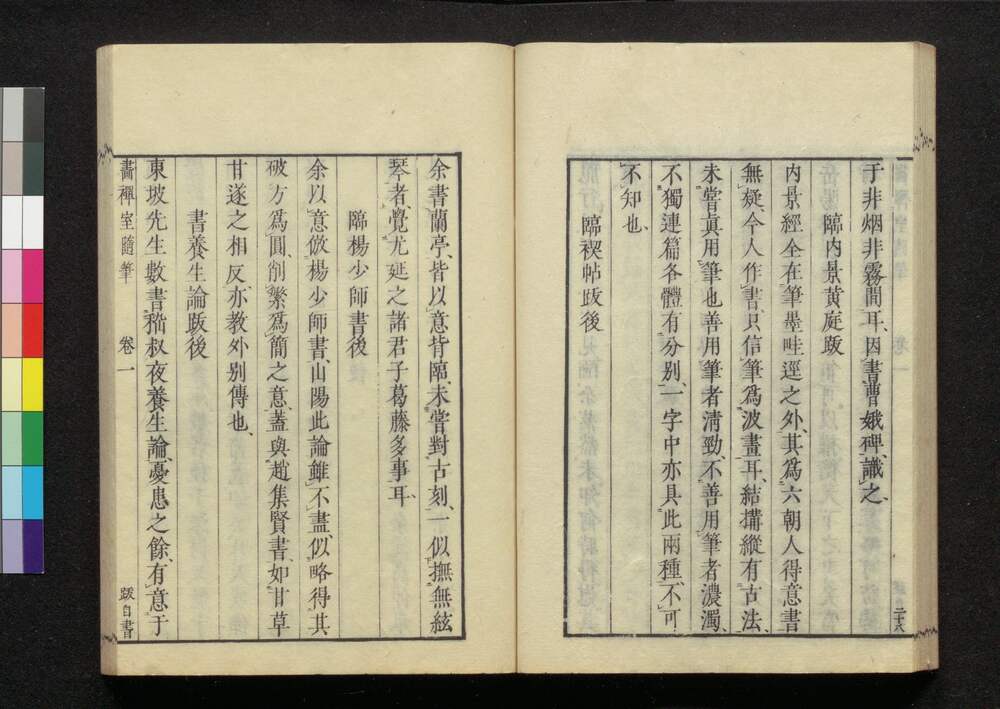 于非烟非霧間耳因書曹娥碑識之
臨內景黃庭䟦
內景經全在筆墨畦逕之外其爲六朝人得意書
無疑今人作書只信筆爲波畫耳結搆縱有古法
未嘗眞用筆也善用筆者淸勁不善用筆者濃濁
不獨連篇各體有分別一字中亦具此兩種不可
不知也
臨禊帖跋後
二十八
余書蘭亭皆以意背臨未嘗對古刻一似撫無絃
琴者覺尤延之諸君子葛藤多事耳
臨楊少師書後
余以意倣楊少師書山陽此論雖不盡似略得其
破方爲圓削繁爲簡之意蓋與趙集賢書如甘草
甘遂之相反亦教外別傳也
書養生論䟦後
東坡先生數書嵇叔夜養生論憂患之餘有意于
畵禪室隨筆 卷一 䟦自書